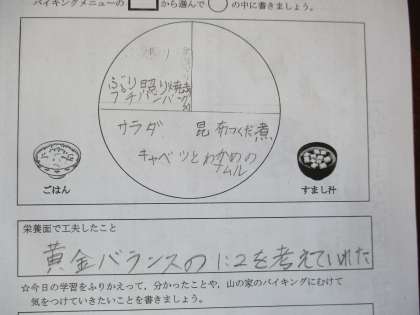 バイキングメニューの□から選んで○の中に書きましょう。
ぶり照り焼き
プチパンパン
サラダ
昆布つくだ煮
キャベツとわかめの
ナムル
ごはん
すまし汁
栄養面で工夫したこと
黄金バランスの1:2を考えていれた
☆今日の学習をふりかえって，分かったことや，山の家のバイキングにむけて
気をつけていきたいことを書きましょう。